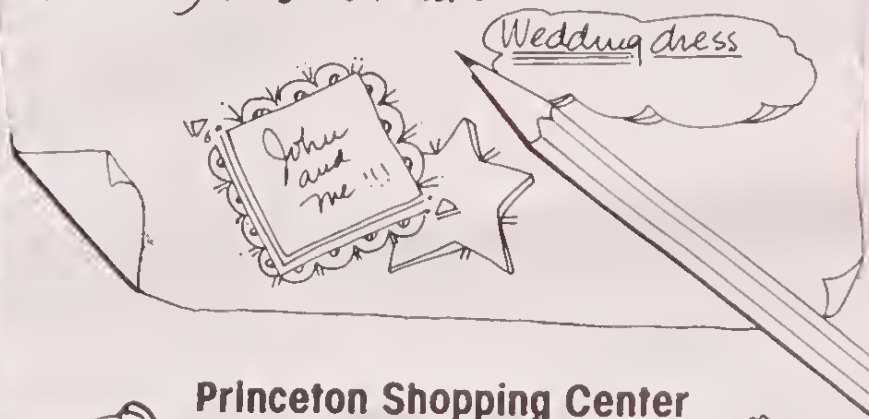 Wedding dress
John
and
me !!!
Princeton Shopping Center